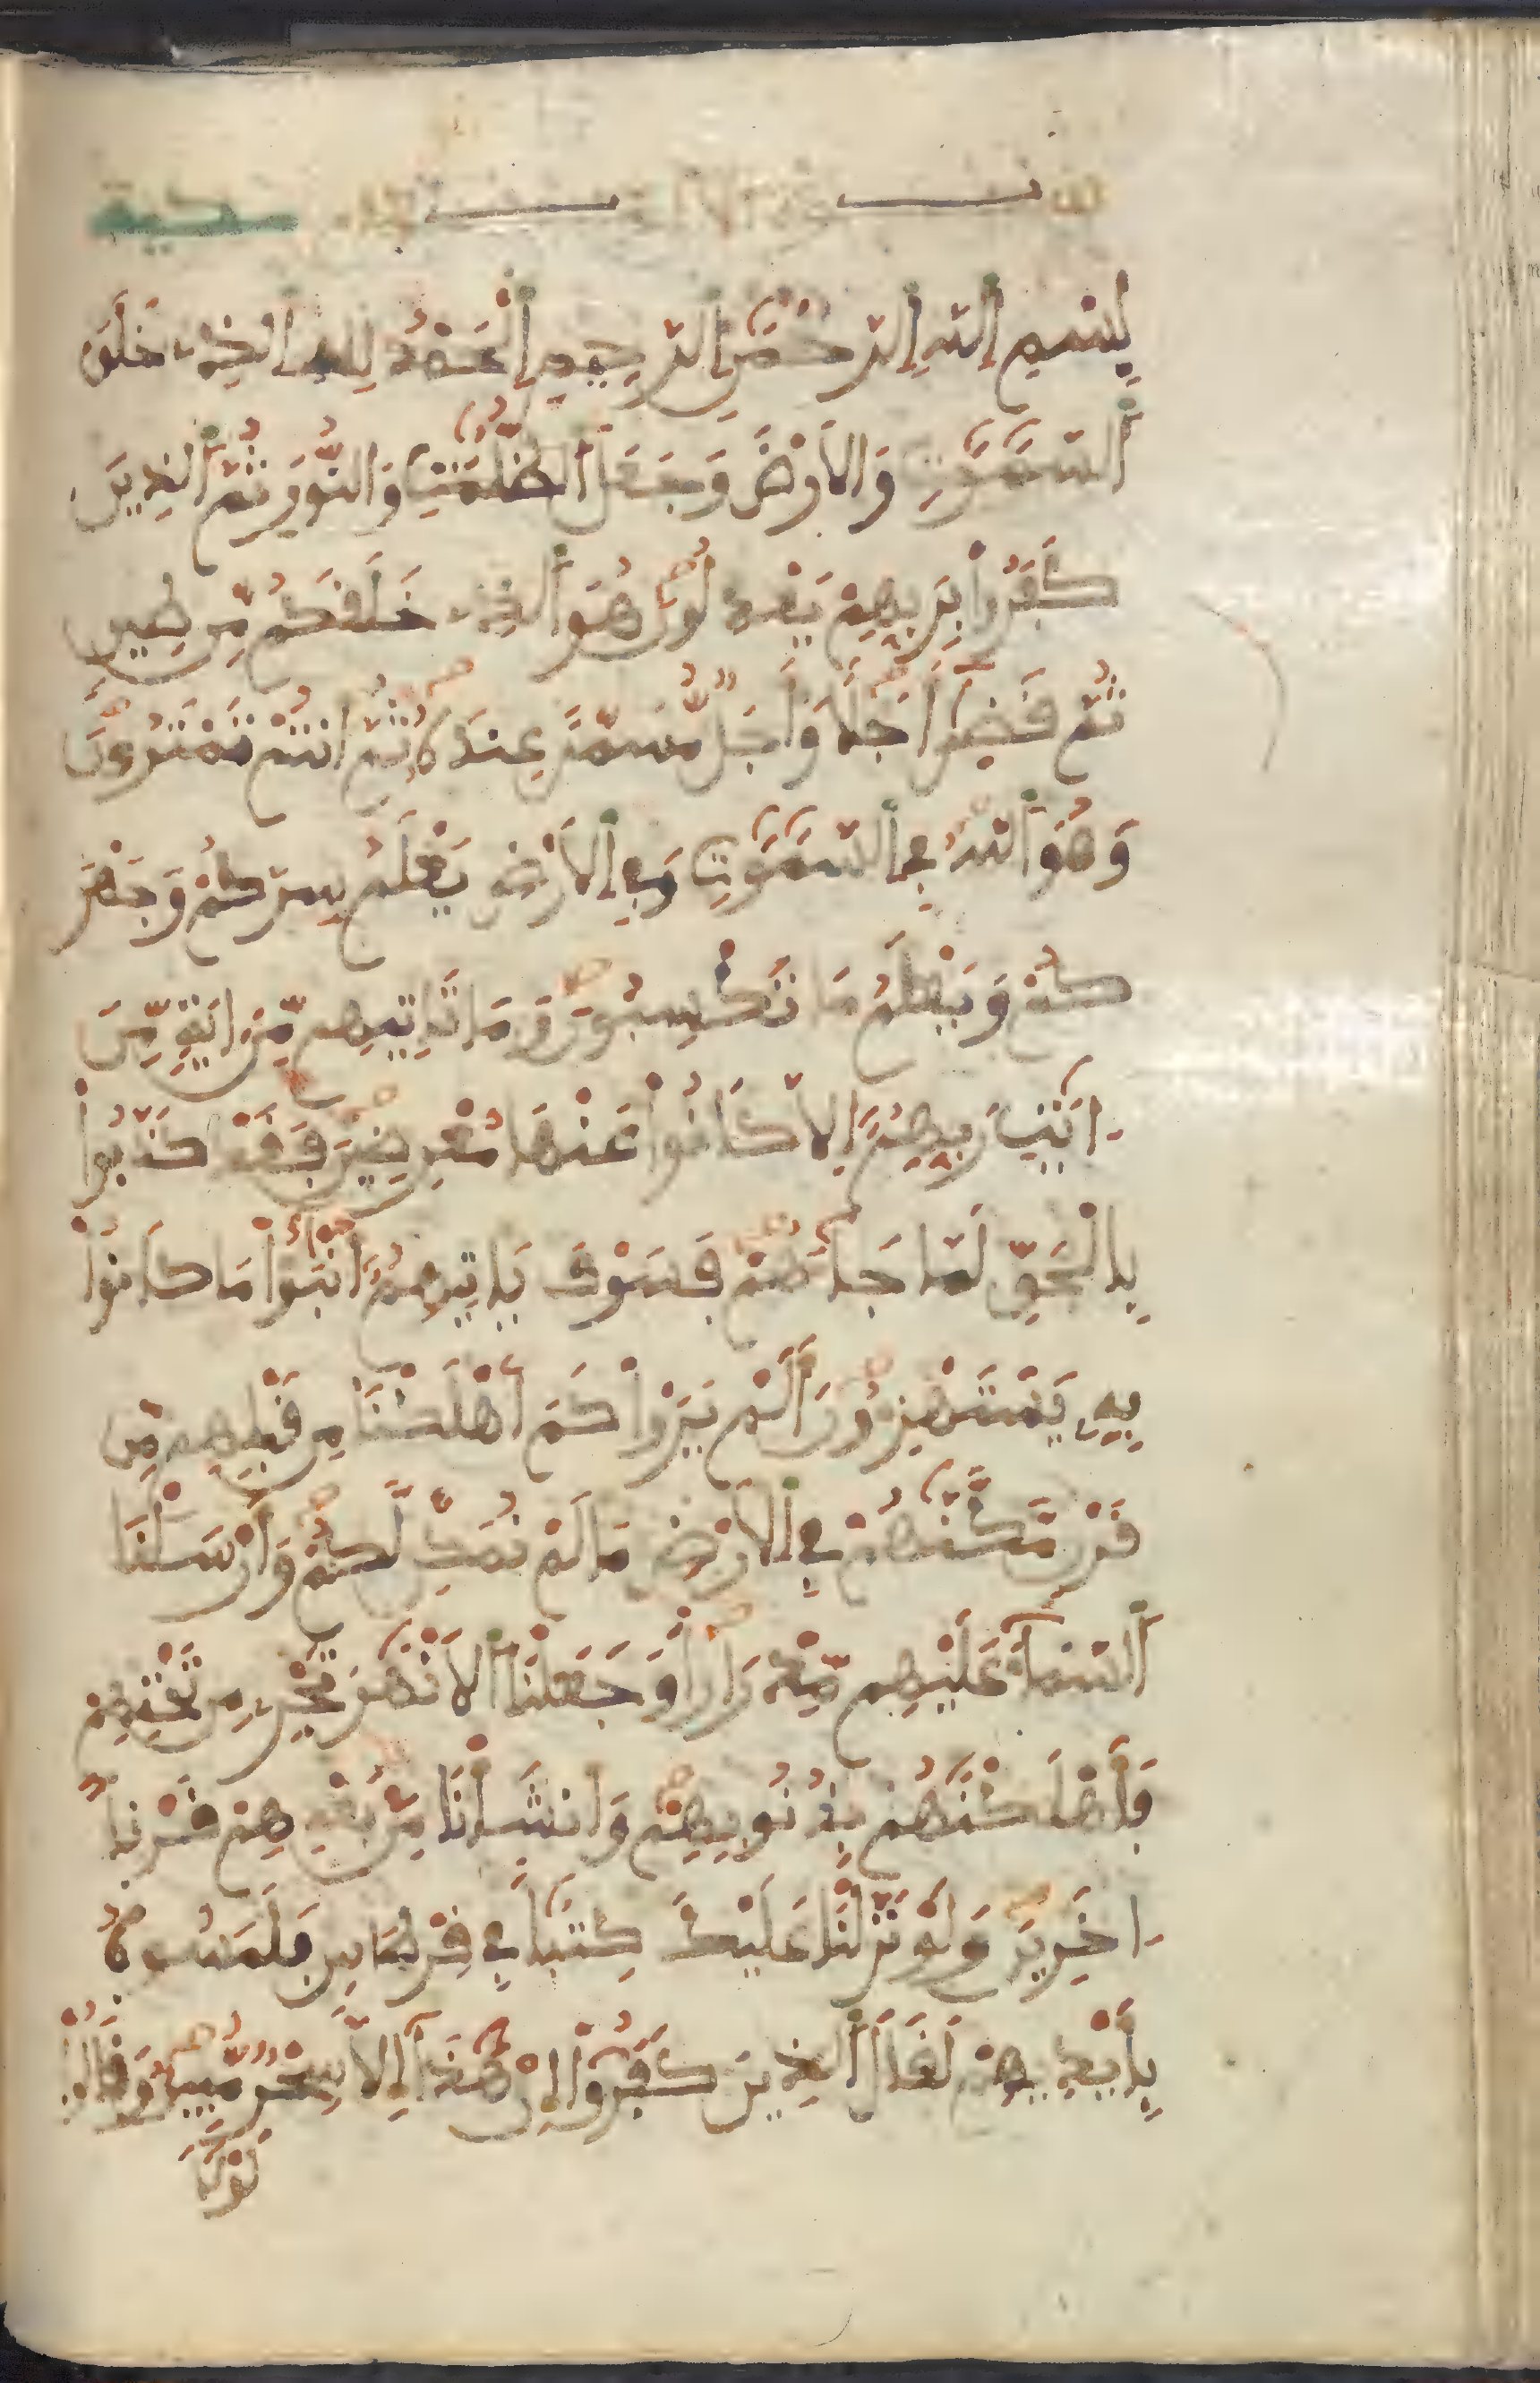 سورة الأنعام مكية
بِسْمِ اِللَّهِ اِلرَّحْمَٰنِ اِلرَّحِيمِ اِلْحَمْدُ لِلهِ اِلذِے خَلَقَ
اَلسَّمَٰوَٰتِ وَالَارْضَ وَجَعَلَ اَلظُّلُمَٰتِ وَالنُّورَ ثُمَّ اَلذِينَ
كَفَرُواْ بِرَبِّهِمْ يَعْدِلُونَ هُوَ اَلذِے خَلَقَكُم مِّن طِينٍ
ثُمَّ قَضَىٰٓ أَجَلًا وَأَجَلٌ مُّسَمًّى عِندَهُ ثُمَّ أَنتُمْ تَمْتَرُونَ
وَهُوَ اَللَّهُ فِے اِلسَّمَٰوَٰتِ وَفِے اِلَارْضِ يَعْلَمُ سِرَّكُمْ وَجَهْرَ
كُمْ وَيَعْلَمُ مَا تَكْسِبُونَ وَمَا تَاتِيهِم مِّنَ ايَةٍ مِّنَ
ايَٰتِ رَبِّهِمُ إِلَّا كَانُواْ عَنْهَا مُعْرِضِينَ فَقَدْ كَذَّبُواْ
بِالْحَقِّ لَمَّا جَآءَهُمْ فَسَوْفَ يَاتِيهِمُ أَنۢبَٰٓؤُاْ مَا كَانُواْ
بِهِۦ يَسْتَهْزِءُونَ أَلَمْ يَرَوْاْ كَمَ اَهْلَكْنَا مِن قَبْلِهِم مِّن
قَرْنٍ مَّكَّنَّٰهُمْ فِے اِلَارْضِ مَا لَمْ نُمَكِّن لَّكُمْ وَأَرْسَلْنَا
اَلسَّمَآءَ عَلَيْهِم مِّدْرَارًا وَجَعَلْنَا اَلَانْهَٰرَ تَجْرِے مِن تَحْتِهِمْ
فَأَهْلَكْنَٰهُم بِذُنُوبِهِمْ وَأَنشَأْنَا مِنۢ بَعْدِهِمْ قَرْنًا
اٰخَرِينَ وَلَوْ نَزَّلْنَا عَلَيْكَ كِتَٰبًا فِے قِرْطَاسٍ فَلَمَسُوهُ
بِأَيْدِيهِمْ لَقَالَ اَلذِينَ كَفَرُوٓاْ إِنْ هَٰذَآ إِلَّا سِحْرٌ مُّبِينٌ وَقَالُواْ
لَوْلَآ